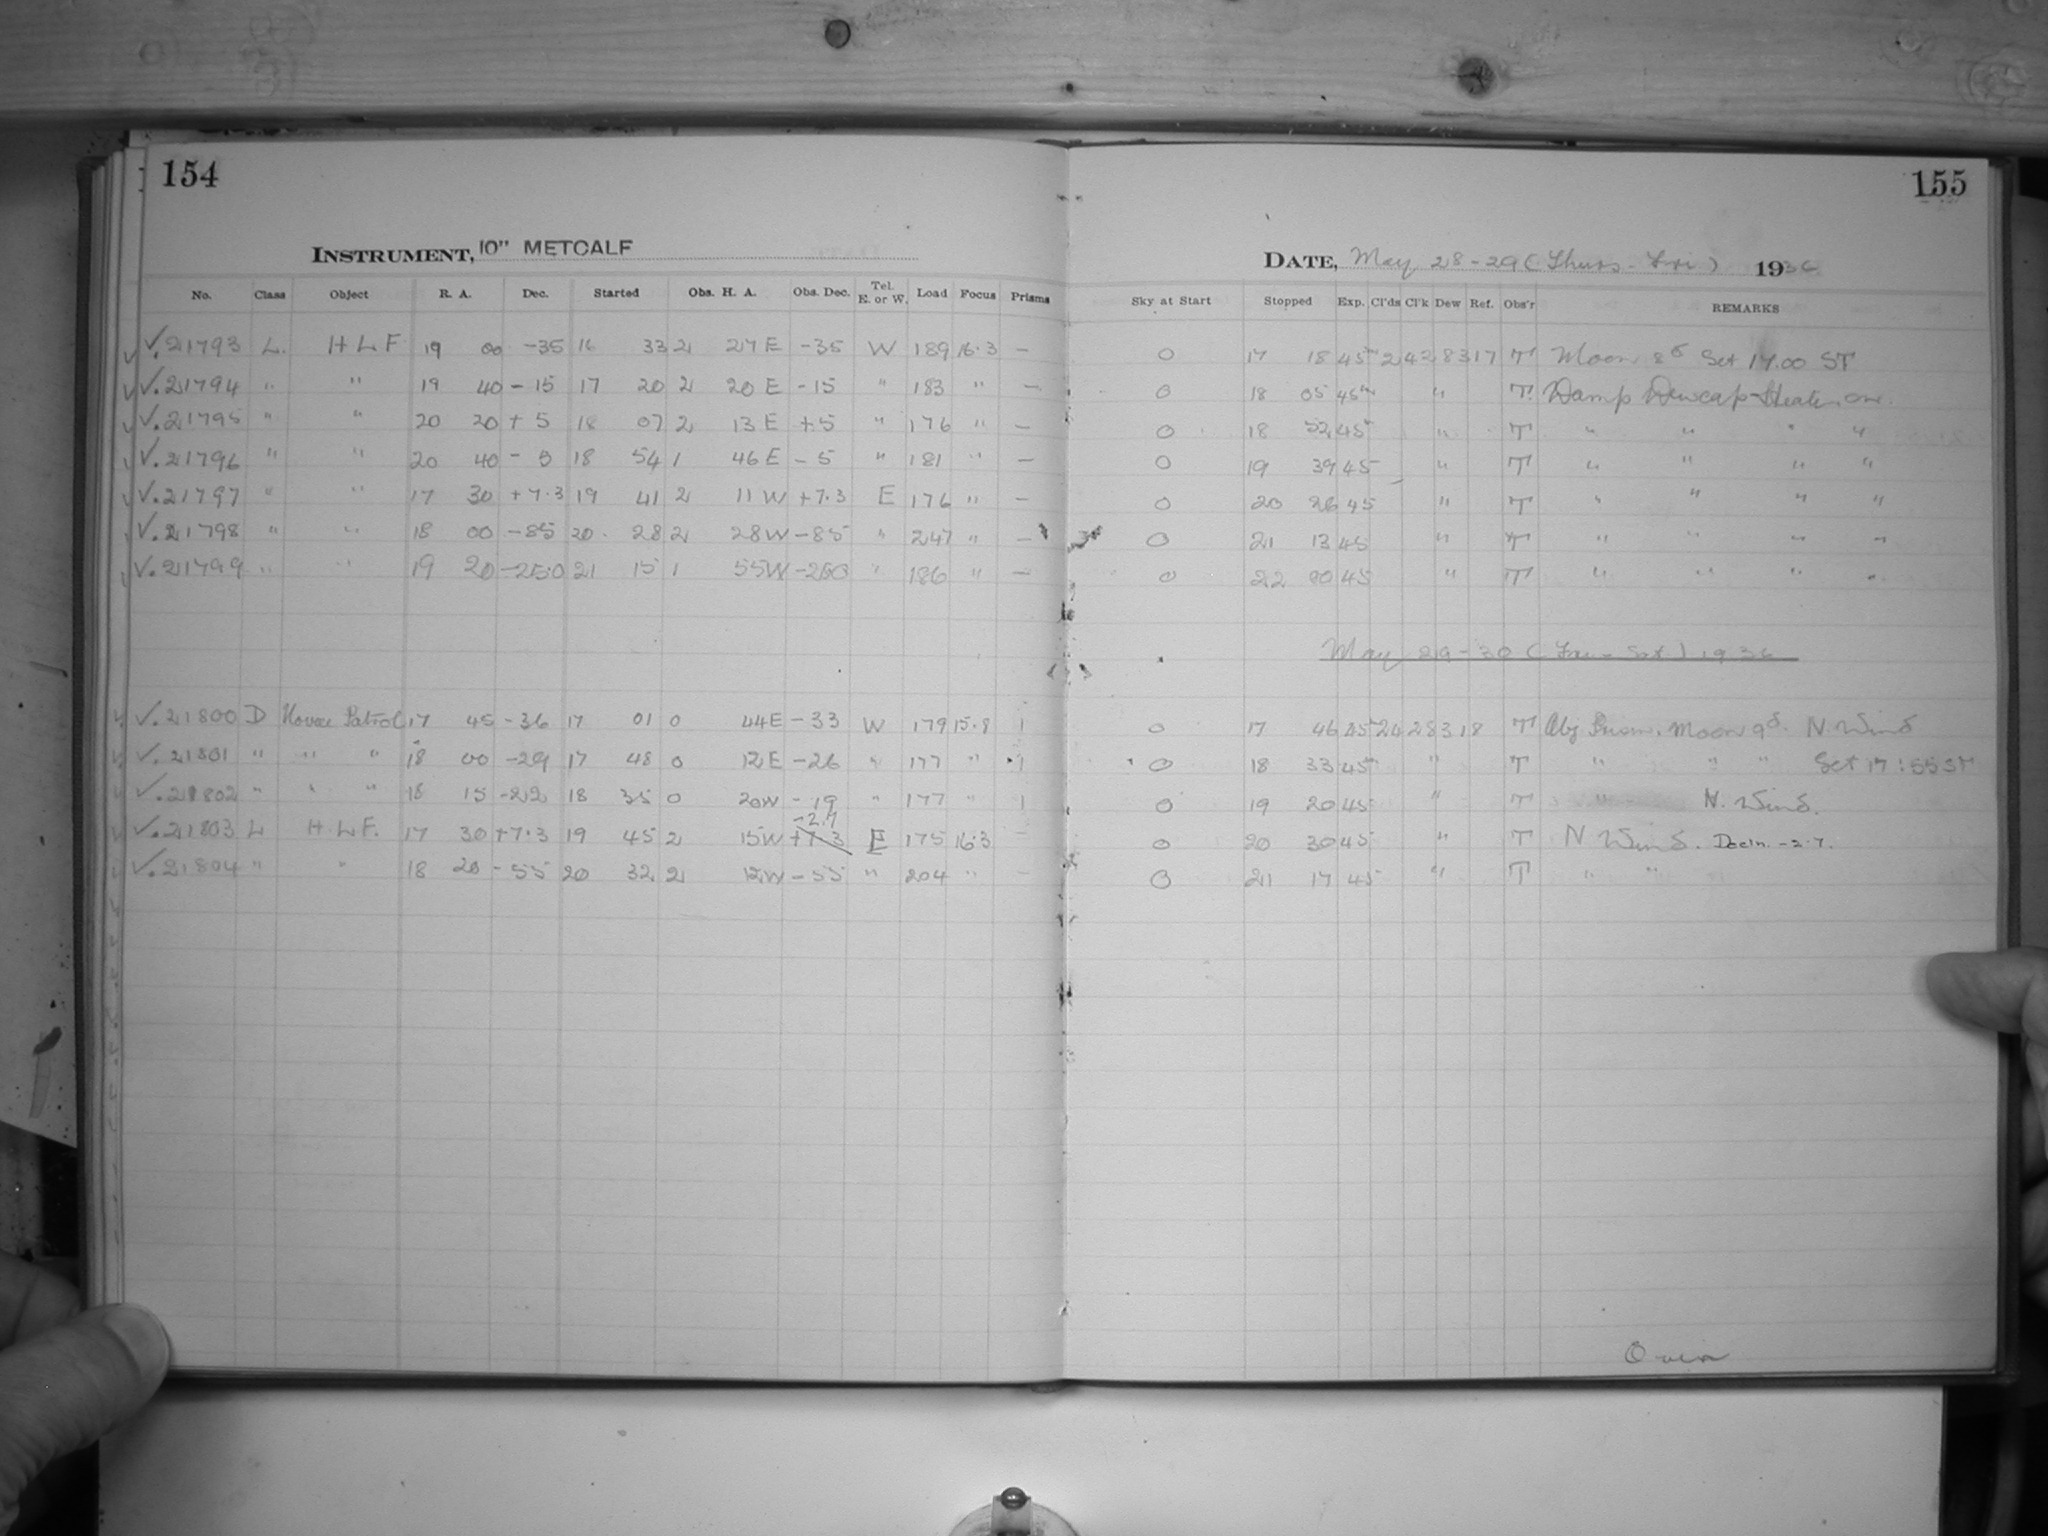 154
155
INSTRUMENT, 10" METCALF
DATE, May 28-29 (Thurs - Fri) 1936
No. Class Object R. A. Dec. Started Obs. H. A. Obs. Dec. Tel. E. or W. Load Focus Prisms Sky at Start Stopped Exp. Cl'ds Cl'k Dew Ref. Obs'r REMARKS
√.21793 L. H L F 19 00 -35 16 33 2 27 E -35 W 189 16.3 - O 17 18 45m T Moon 8d Set 17.00 ST
√.21794 " " 19 40 -15 17 20 2 20 E -15 " 183 " - O 18 05 45m " T Damp Dewcap-Heater on.
√.21795 " " 20 20 +5 18 07 2 13 E +5 " 176 " - O 18 52 45m " T " " " "
√.21796 " " 20 40 -5 18 54 1 46 E -5 " 181 " - O 19 39 45 " T " " " "
√.21797 " " 17 30 +7.3 19 41 2 11 W +7.3 E 176 " - O 20 26 45 " T " " " "
√.21798 " " 18 00 -85 20 28 2 28 W -85 " 247 " - O 21 13 45 " T " " " "
√.21799 " " 19 20 -25.0 21 15 1 55 W " 186 " - O 22 00 45 " T " " " "
May 29-30 (Fri - Sat) 1936
√.21800 D Novae Patrol 17 45 -36 17 01 0 44 E -33 W 179 15.8 1 O 17 46 45m T Obj Prism. Moon 9d. N. Wind
√.21801 " " " 18 00 -29 17 48 0 12 E -26 " 177 " 1 O 18 33 45m " T " " " Set 17:55 ST
√.21802 " " " 18 15 -22 18 35 0 20 W -19 " 177 " 1 O 19 20 45 " T " N. Wind.
-2.7
√.21803 L H. L F. 17 30 +7.3 19 45 2 15 W +7.3 E 175 16.3 - O 20 30 45 " T N Wind. Decln. -2.7.
√.21804 " " 18 20 -55 20 32 2 12 W -55 " 204 " - O 21 17 45 " T " "
Over